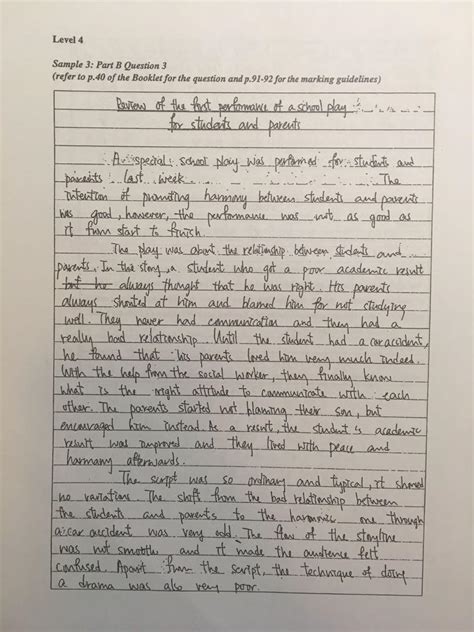 Level 4
Sample 3: Part B Question 3
(refer to p.40 of the Booklet for the question and p.91-92 for the marking guidelines)
Review of the first performance of a school play
for students and parents
A special school play was performed for students and
parents last week. The
intention of promoting harmony between students and parents
was good, however, the performance was not as good as
it from start to finish.
The play was about the relationship between students and
parents. In this story, a student who got a poor academic result
but he always thought that he was right. His parents
always shouted at him and blamed him for not studying
well. They never had communication and they had a
really bad relationship. Until the student had a car accident,
he found that his parents loved him very much indeed.
With the help from the social worker, they finally know
what is the right attitude to communicate with each
other. The parents started not blaming their son, but
encouraged him instead. As a result, the student's academic
result was improved and they lived with peace and
harmony afterwards.
The script was so ordinary and typical, it showed
no variations. The shift from the bad relationship between
the students and parents to the harmonic one through
a car accident was very odd. The flow of the storyline
was not smooth and it made the audience felt
confused. Apart from the script, the technique of doing
a drama was also very poor.